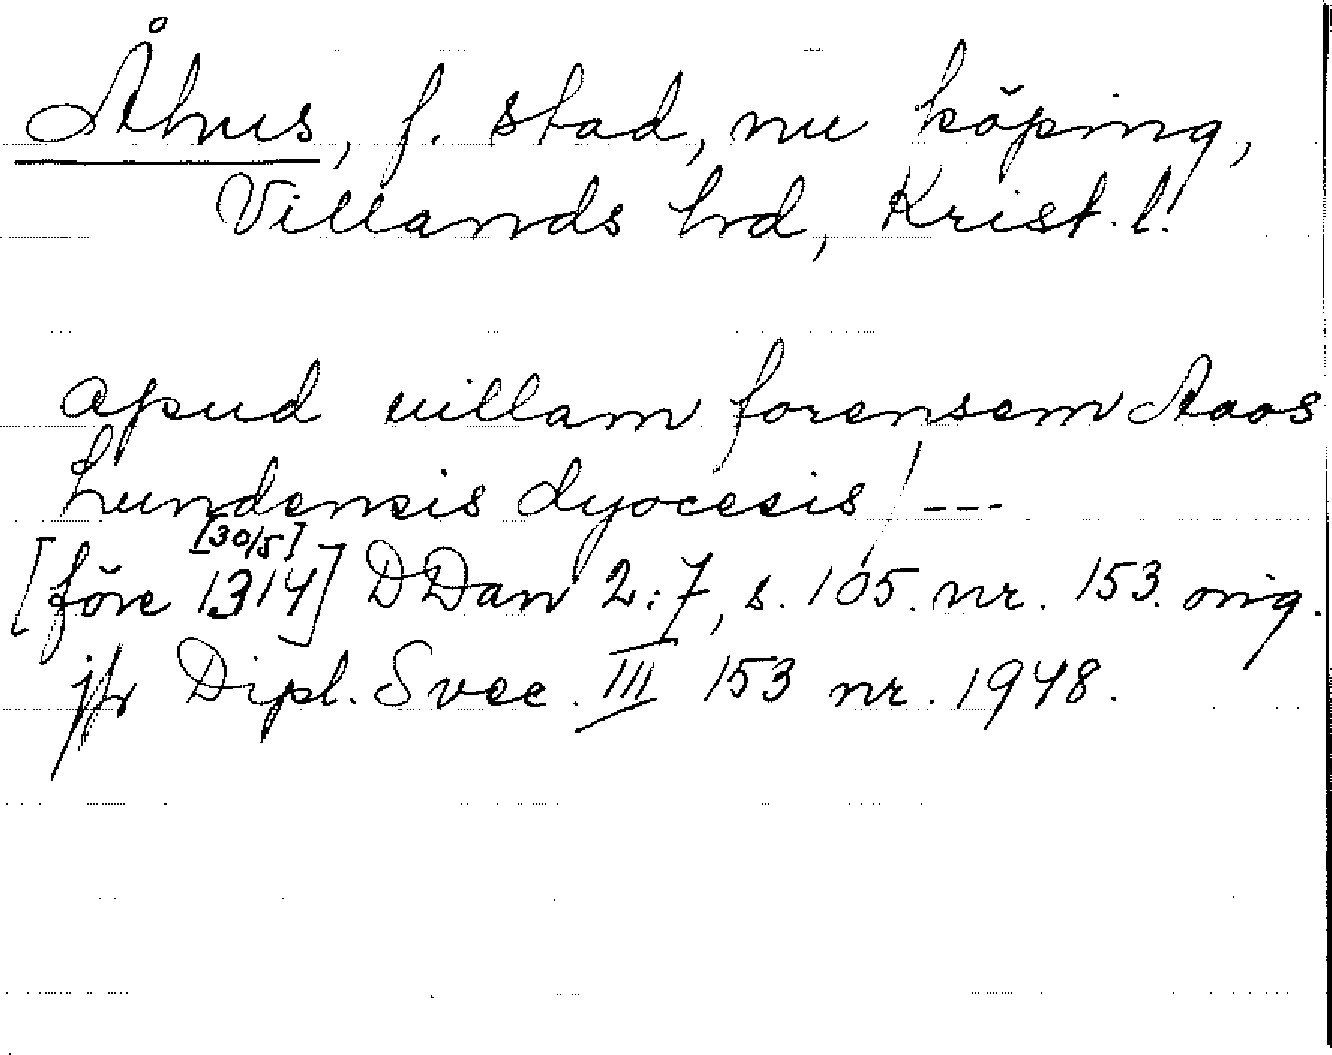 Åhus, f. stad, nu köping,
Villands hd, Krist. l.
apud uillam forensem Aaos
Lundensis dyocesis / ---
[30/5]
[före 1314] DDan 2:7, s. 105. nr. 153. orig.
jfr Dipl. Svec. III 153 nr. 1948.